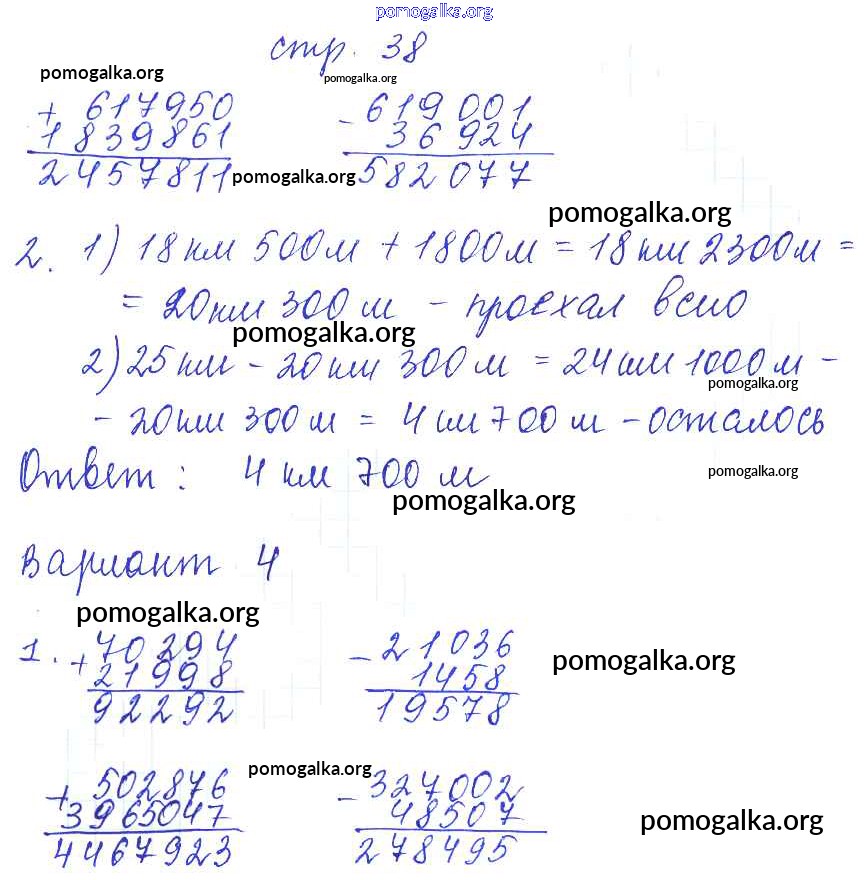 pomogalka.org
стр. 38
pomogalka.org pomogalka.org
+ 617950 - 619 001
1839861 36 924
2457811 pomogalka.org 582 077
pomogalka.org
2. 1) 18 км 500 м + 1800 м = 18 км 2300 м =
= 20 км 300 м - проехал всего
pomogalka.org
2) 25 км - 20 км 300 м = 24 км 1000 м -
pomogalka.org
- 20 км 300 м = 4 км 700 м - осталось
Ответ: 4 км 700 м pomogalka.org
pomogalka.org
Вариант 4
pomogalka.org
1. + 70294 - 21036
21998 1458 pomogalka.org
92292 19578
pomogalka.org
+ 502876 - 327002
3965047 48507 pomogalka.org
4467923 278495